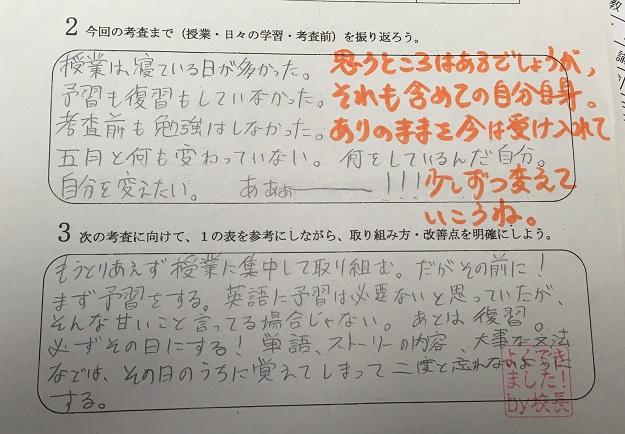 2 今回の考査まで(授業・日々の学習・考査前)を振り返ろう。
授業は、寝ている日が多かった。
予習も復習もしていなかった。
考査前も勉強はしなかった。
五月と何も変わっていない。何をしているんだ自分。
自分を変えたい。 ああぁ――!!!
思うところはあるでしょうが、
それも含めての自分自身。
ありのままを今は受け入れて
少しずつ変えて
いこうね。
3 次の考査に向けて、1の表を参考にしながら、取り組み方・改善点を明確にしよう。
もうとりあえず授業に集中して取り組む。だがその前に!
まず予習をする。英語に予習は必要ないと思っていたが、
そんな甘いこと言ってる場合じゃない。あとは復習。
必ずその日にする!単語、ストーリーの内容、大事な文法
などは、その日のうちに覚えてしまって二度と忘れないように
する。
よくできました!
by校長
数